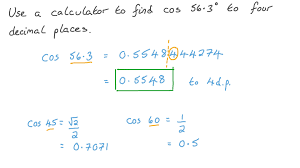 Use a calculator to find cos 56.3° to four
decimal places.
cos 56.3 = 0.5548444274
= 0.5548 to 4d.p.
cos 45 = √2/2 cos 60 = 1/2
= 0.7071 = 0.5